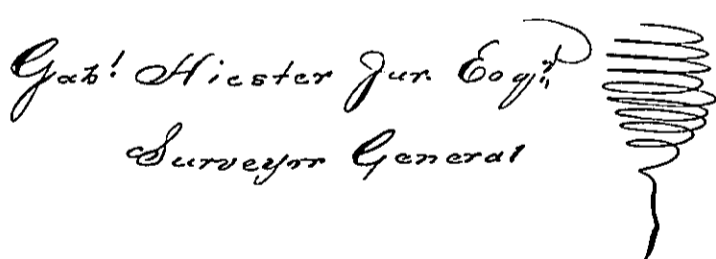 Gabl. Hiester Jur. Esqr.
Surveyrr General